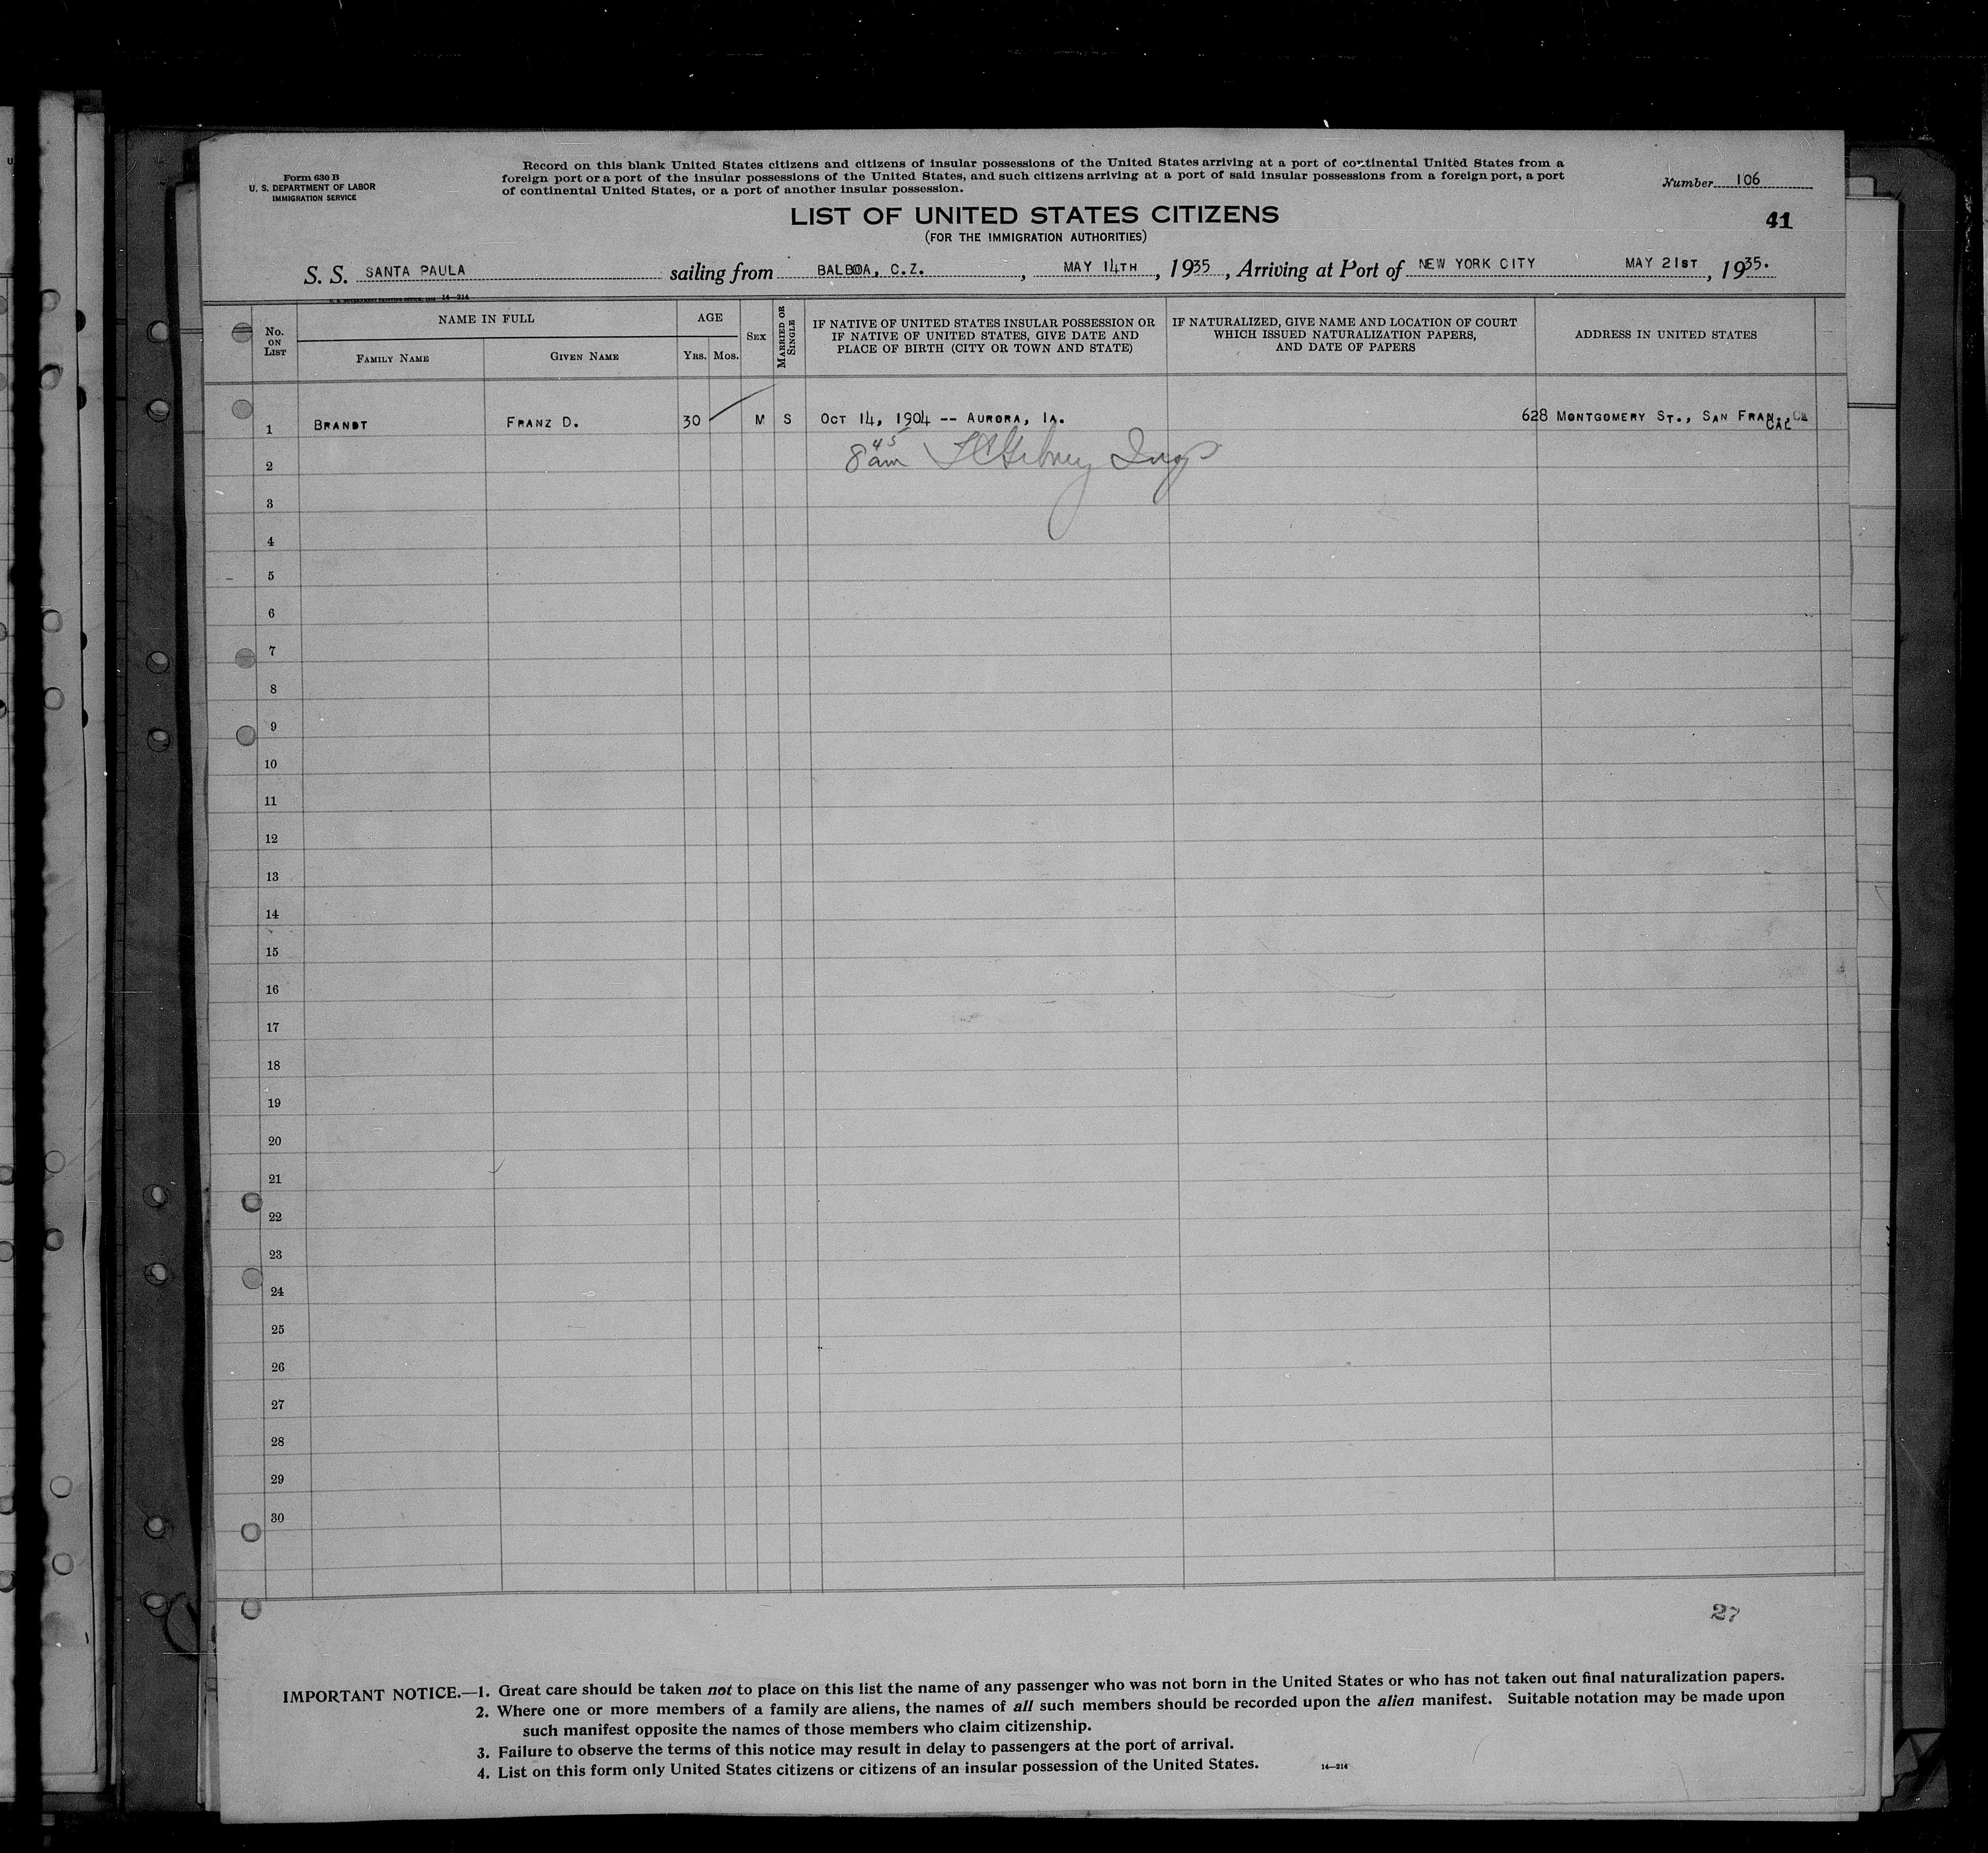 Form 630 B
U. S. DEPARTMENT OF LABOR
IMMIGRATION SERVICE
Record on this blank United States citizens and citizens of insular possessions of the United States arriving at a port of continental United States from a
foreign port or a port of the insular possessions of the United States, and such citizens arriving at a port of said insular possessions from a foreign port, a port
of continental United States, or a port of another insular possession.
Number 106
41
LIST OF UNITED STATES CITIZENS
(FOR THE IMMIGRATION AUTHORITIES)
S. S. SANTA PAULA sailing from BALBOA, C.Z., MAY 14TH, 1935, Arriving at Port of NEW YORK CITY MAY 21ST, 1935.
14—214
No. ON LIST
NAME IN FULL
FAMILY NAME
GIVEN NAME
AGE
YRS. MOS.
SEX
MARRIED OR SINGLE
IF NATIVE OF UNITED STATES INSULAR POSSESSION OR
IF NATIVE OF UNITED STATES, GIVE DATE AND
PLACE OF BIRTH (CITY OR TOWN AND STATE)
IF NATURALIZED, GIVE NAME AND LOCATION OF COURT
WHICH ISSUED NATURALIZATION PAPERS,
AND DATE OF PAPERS
ADDRESS IN UNITED STATES
1 BRANDT FRANZ D. 30 M S OCT 14, 1904 -- AURORA, IA. 628 MONTGOMERY ST., SAN FRAN., CAL
2 8 45 am
3
4
5
6
7
8
9
10
11
12
13
14
15
16
17
18
19
20
21
22
23
24
25
26
27
28
29
30
27
IMPORTANT NOTICE.—1. Great care should be taken not to place on this list the name of any passenger who was not born in the United States or who has not taken out final naturalization papers.
2. Where one or more members of a family are aliens, the names of all such members should be recorded upon the alien manifest. Suitable notation may be made upon
such manifest opposite the names of those members who claim citizenship.
3. Failure to observe the terms of this notice may result in delay to passengers at the port of arrival.
4. List on this form only United States citizens or citizens of an insular possession of the United States.
14—214